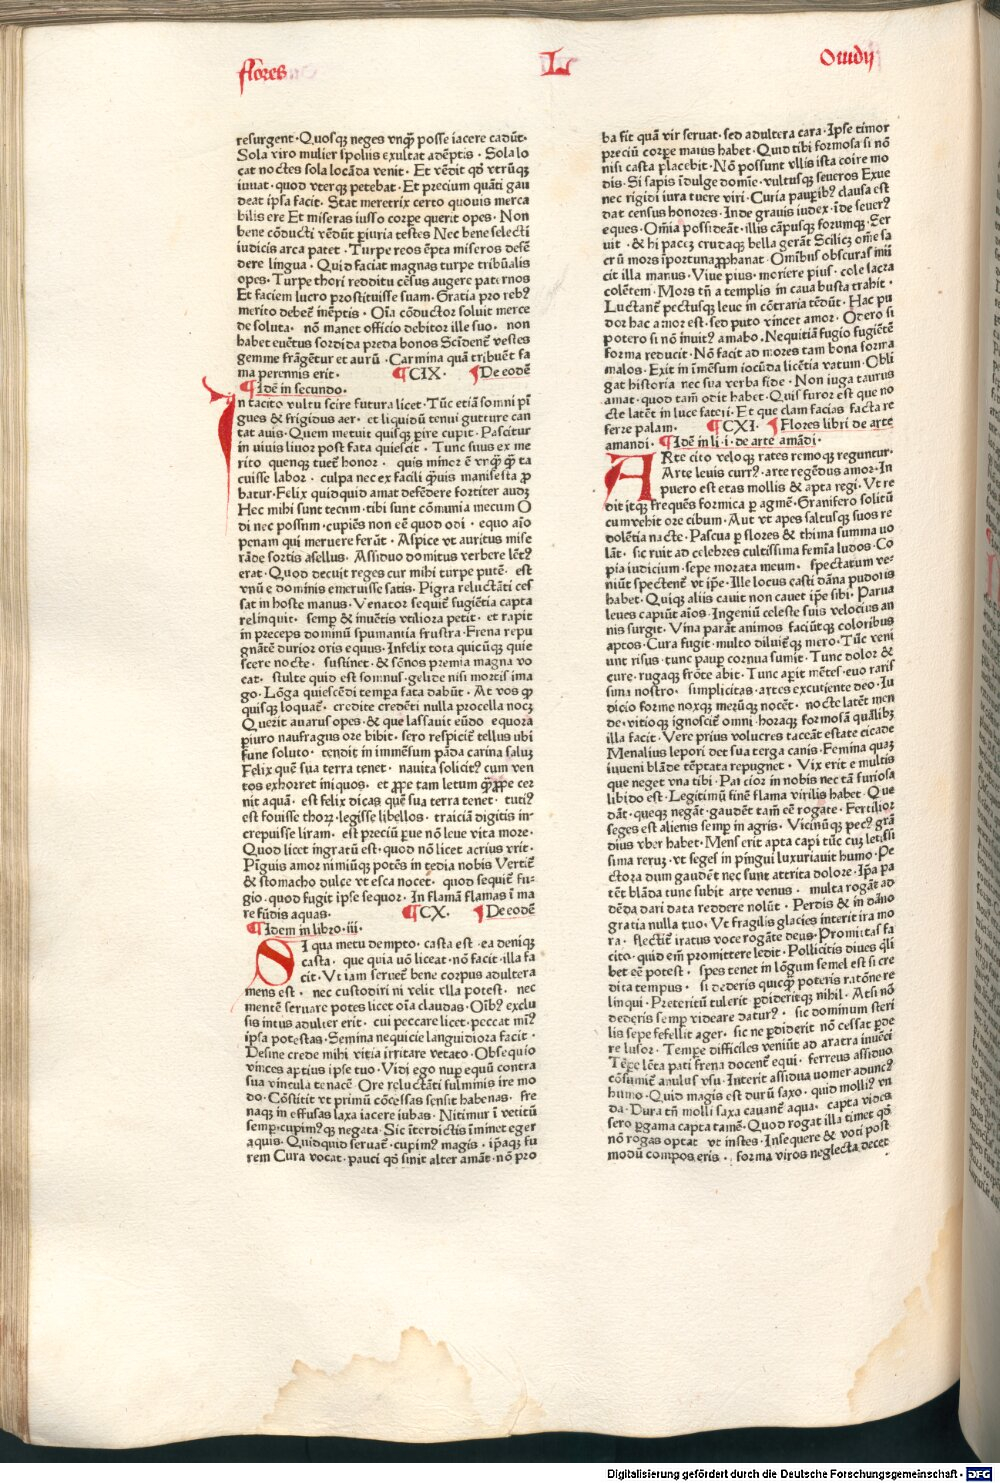 flores L Ouidij
resurgent · Quosq; neges vnq̃ posse iacere cadūt·
Sola viro mulier spoliis exultat adēptis · Sola lo
cat noctes sola locāda venit · Et vēdit qď vtrūq;
iuuat · quod vterq; petebat · Et precium quāti gau
deat ipsa facit · Stat meretrix certo quouis merca
bilis ere Et miseras iusso corpe querit opes · Non
bene cōducti vēdūt piuria testes Nec bene selecti
iudicis arca patet · Turpe reos ēpta miseros defē
dere lingua · Quid faciat magnas turpe tribūalis
opes · Turpe thori redditu cēsus augere paternos
Et faciem lucro prostituisse suam · Gratia pro reb⁹
merito debet̄ inēptis · Oīa cōductor soluit merce
de soluta · nō manet officio debitor ille suo · non
habet euētus sordida preda bonos Scīdent̄ vestes
gemme frāgētur et aurū · Carmina quā tribuēt fa
ma perennis erit · ¶ CIX · ¶ De eodē
¶ Idē in secundo ·
In tacito vultu scire futura licet · Tūc etiā somni pī
gues & frigidus aer · et liquidū tenui gutture can
tat auis · Quem metuit quisq; pire cupit · Pascitur
in viuis liuor post fata quiescit · Tunc suus ex me
rito quenq; tuet̄ honor · quis miner ē vrq̃ q̃ ta
cuisse labor · culpa nec ex facili q̃uis manifesta p
batur · Felix quidquid amat defēdere fortiter audz
Hec mihi sunt tecum · tibi sunt cōmunia mecum O
di nec possum · cupiēs non eē quod odi · equo aīo
penam qui meruere ferūt · Aspice vt auritus mise
rāde sortis asellus · Assiduo domitus verbere lēt⁹
erat · Quod decuit reges cur mihi turpe putē · est
vnū e dominis emeruisse satis · Pigra reluctāti ces
sat in hoste manus · Venator sequit̄ fugiētia capta
relinquit · semp & inuētis vtiliora petit · et rapit
in preceps dominū spumantia frustra · Frena repu
gnātē durior oris equus · Infelix tota quicūq; quie
scere nocte · sustinet · & sēnos premia magna vo
cat · stulte quid est somnus · gelide nisi mortis ima
go · Lōga quiescēdi tempa fata dabūt · At vos q
quisq; loquat̄ · credite credēti nulla procella nocz
Querit auarus opes · & que lassauit eūdo equora
piuro naufragus ore bibit · sero respicit̄ tellus ubi
fune soluto · tendit in immēsum pāda carina saluz
Felix quē sua terra tenet · nauita solicit⁹ cum ven
tos exhorret iniquos · et ppe tam letum q̃ppe cer
nit aquā · est felix dicas quē sua terra tenet · tuti⁹
est fouisse thorz · legisse libellos · traiciā digitis in-
crepuisse liram · est preciū pue nō leue vita more ·
Quod licet ingratū est · quod nō licet acrius vrit ·
Pīguis amor nimiūq; potēs in tedia nobis Vertit̄
& stomacho dulce vt esca nocet · quod sequit̄ fu-
gio · quod fugit ipse sequor · In flamā flamas ī ma
re fūdis aquas · ¶ CX · ¶ De eodē
¶ Idem in libro · iii ·
Si qua metu dempto · casta est · ea deniq;
casta · que quia uō liceat · nō facit · illa fa
cit · Vt iam seruet̄ bene corpus adultera
mens est · nec custodiri ni velit vlla potest · nec
mentē seruare potes licet oīa claudas · Oīb⁹ exclu
sis intus adulter erit · cui peccare licet · peccat mi⁹
ipsa potestas · Semina nequicie languidiora facit ·
Desine crede mihi vitia irritare vetato · Obsequio
vinces aptius ipse tuo · Vidi ego nup equū contra
sua vincula tenacē · Ore reluctāti fulminis ire mo
do · Cōstitit vt primū cōcessas sensit habenas · fre
naq; in effusas laxa iacere iubas · Nitimur ī vetitū
semp · cupim⁹q; negata · Sic īterdictis īminet eger
aquis · Quidquid seruat̄ · cupim⁹ magis · ipaq; fu
rem Cura vocat · pauci qď sinit alter amāt · nō pro
ba fit quā vir seruat · sed adultera cara · Ipse timor
preciū corpe maius habet · Quid tibi formosa si nō
nisi casta placebit · Nō possunt vllis ista coire mo
dis · Si sapis īdulge domīe · vultusq; seueros Exue
nec rigidi iura tuere viri · Curia paupib⁹ clausa est
dat census honores · Inde grauis iudex · īde seuer⁹
eques · Om̄ia possideāt · illis cāpusq; forumq; Ser
uit · & hi pacez crudaq; bella gerāt Scilicz om̄e sa
crū mors īportuna pphanat · Omībus obscuras inii
cit illa manus · Viue pius · moriere pius · cole sacra
colētem · Mors tn̄ a templis in caua busta trahit ·
Luctant̄ pectusq; leue in cōtraria tēdūt · Hac pu
dor hac amor est · sed puto vincet amor · Odero si
potero si nō inuit⁹ amabo · Nequitiā fugio fugiētē
forma reducit · Nō facit ad mores tam bona forma
malos · Exit in īmēsum iocūda licētia vatum · Obli
gat historia nec sua verba fide · Non iuga taurus
amat · quod tam̄ odit habet · Quis furor est que no
cte latēt in luce fateri · Et que clam facias facta re
ferre palam · ¶ CXI · ¶ Flores libri de arte
amandi · ¶ Idē in li · i · de arte amādi ·
ARte cito veloq; rates remoq; reguntur ·
Arte leuis curr⁹ · arte regēdus amor · In
puero est etas mollis & apta regi · Vt re
dit itq; frequēs formica p agmē · Granifero solitū
cum vehit ore cibum · Aut vt apes saltusq; suos re
dolētia nacte · Pascua p flores & thima summa uo
lāt · sic ruit ad celebres cultissima femīa ludos · Co
pia iudicium · sepe morata meum · spectatum ve-
niūt spectent̄ vt ipe · Ille locus casti dāna pudoris
habet · Quiq; aliis cauit non cauet ipe sibi · Parua
leues capiūt aīos · Ingeniū celeste suis velocius an
nis surgit · Vina parāt animos faciūtq; coloribus
aptos · Cura fugit · multo diluit̄q; mero · Tūc veni
unt risus · tunc paup cornua sumit · Tunc dolor &
cure · rugaq; frōte abit · Tunc apit mētes · euo raris
sima nostro · simplicitas · artes excutiente deo · Iu
dicio forme noxq; merūq; nocēt · nocte latēt men
de · vitioq; ignoscit̄ omni · horaq; formosā quālib;
illa facit · Vere prius volucres taceāt estate cicade
Menalius lepori det sua terga canis · Femina quaz
iuueni blāde tēptata repugnet · Vix erit e multis
que neget vna tibi · Parcior in nobis nec tā furiosa
libido est · Legitimū finē flama virilis habet · Que
dāt · queq; negāt · gaudēt tam̄ eē rogate · Fertilior
seges est alienis semp in agris · Vicinūq; pec⁹ grā
dius vber habet · Mens erit apta capi tūc cuz letissi
sima reruz · vt seges in pingui luxuriauit humo · Pe
ctora dum gaudēt nec sunt attrita dolore · Ipa pa
tēt blāda tunc subit arte venus · multa rogāt ad
dēda dari data reddere nolūt · Perdis & in dāno
gratia nulla tuo · Vt fragilis glacies interit ira mo
ra · flectit̄ iratus voce rogāte deus · Promittas fa
cito · quid em̄ promittere ledit · Pollicitis diues qli
bet eē potest · spes tenet in lōgum semel est si cre
dita tempus · si dederis quicq̃ poteris ratōne re
linqui · Preteritū tulerit pdideritq; nihil · At si nō
dederis semp videare datur⁹ · sic dominum steri
lis sepe fefellit ager · sic ne pdiderit nō cessat pde
re lusor · Tempe difficiles veniūt ad aratra iuuēci
Tēpe lēta pati frena docent̄ equi · ferreus assiduo
cōsumit̄ anulus vsu · Interit assidua uomer adunc⁹
humo · Quid magis est durū saxo · quid molli⁹ vn
da · Dura tn̄ molli saxa cauant̄ aqua · capta vides
sero pgama capta tamē · Quod rogat illa timet qď
nō rogas optat vt instes · Insequere & voti post
modū compos eris · forma viros neglecta decet
Digitalisierung gefördert durch die Deutsche Forschungsgemeinschaft · DFG